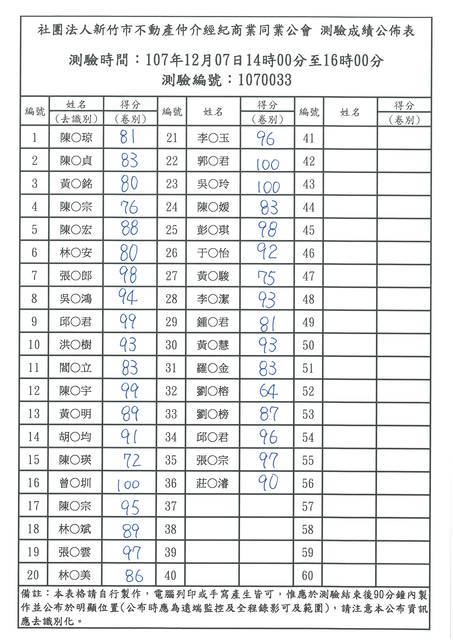 社團法人新竹市不動產仲介經紀商業同業公會 測驗成績公佈表
測驗時間：107年12月07日14時00分至16時00分
測驗編號：1070033
編號 姓名(去識別) 得分(卷別) 編號 姓名(去識別) 得分(卷別) 編號 姓名 得分(卷別)
1 陳○琼 81 21 李○玉 96 41
2 陳○貞 83 22 郭○君 100 42
3 黃○銘 80 23 吳○玲 100 43
4 陳○宗 76 24 陳○媛 83 44
5 陳○宏 88 25 彭○琪 98 45
6 林○安 80 26 于○怡 92 46
7 張○郎 98 27 黃○駿 75 47
8 吳○鴻 94 28 李○潔 93 48
9 邱○君 99 29 鍾○君 81 49
10 洪○樹 93 30 黃○慧 93 50
11 閻○立 83 31 羅○金 83 51
12 陳○宇 99 32 劉○榕 64 52
13 黃○明 89 33 劉○榜 87 53
14 胡○均 91 34 邱○君 96 54
15 陳○瑛 72 35 張○宗 97 55
16 曾○圳 100 36 莊○濬 90 56
17 陳○宗 95 37 57
18 林○斌 89 38 58
19 張○雲 97 39 59
20 林○美 86 40 60
備註：本表格請自行製作，電腦列印或手寫產生皆可，惟應於測驗結束後90分鐘內製
作並公布於明顯位置(公布時應為遠端監控及全程錄影可及範圍)，請注意本公布資訊
應去識別化。